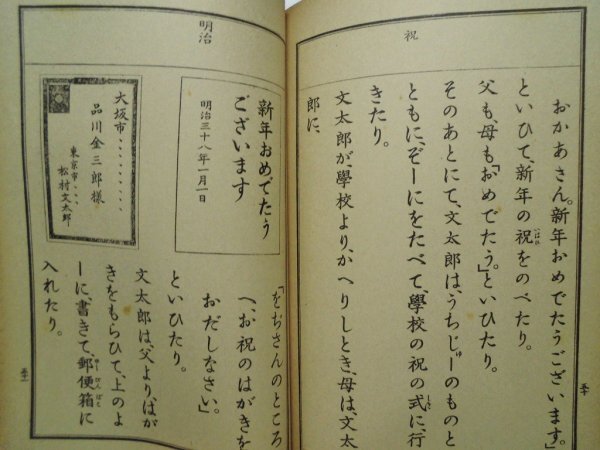 祝
おかあさん。新年おめでたうございます。」
といひて、新年の祝をのべたり。
いはひ
父も、母も「おめでたう。」といひたり。
そのあとにて、文太郎は、うちじゅーのものと
ともに、ぞーにをたべて、學校の祝の式に、行
しき
きたり。
文太郎が、學校より、かへりしとき、母は、文太
郎に、
五十
明治
新年おめでたう
ございます
明治三十八年一月一日
大坂市、、、、、、
品川金三郎様
東京市、、、
松村文太郎
「をぢさんのところ
へ、お祝のはがきを
おだしなさい。」
といひたり。
文太郎は、父より、はが
きをもらひて、上のよ
ーに、書きて、郵便箱に
ゆーびんばこ
入れたり。
五十一